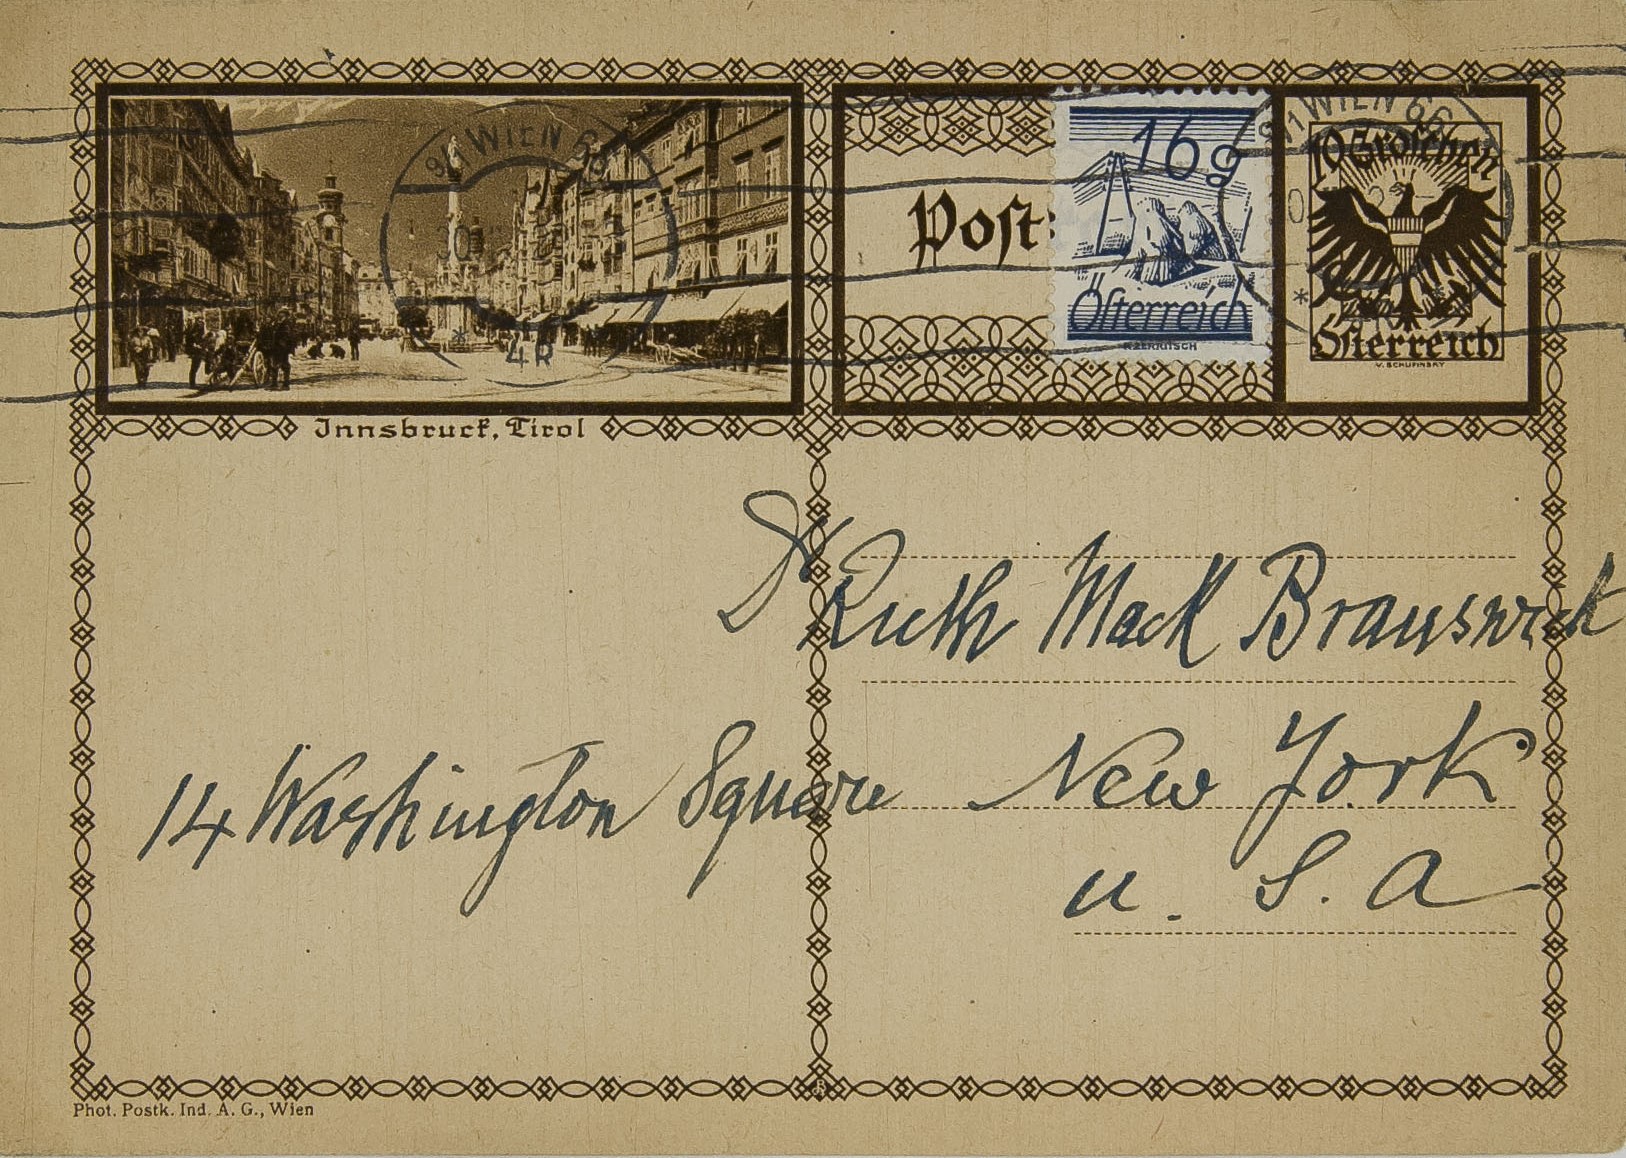 9/1 WIEN 66
30
4R
Innsbruck, Tirol
Post
16g
Österreich
R.ZERRITSCH
9/1 WIEN 66
10 Groschen
Österreich
V. SCHUFINSKY
Dr Ruth Mack Brunswick
14 Washington Square New York
U. S. A
Phot. Postk. Ind. A. G., Wien